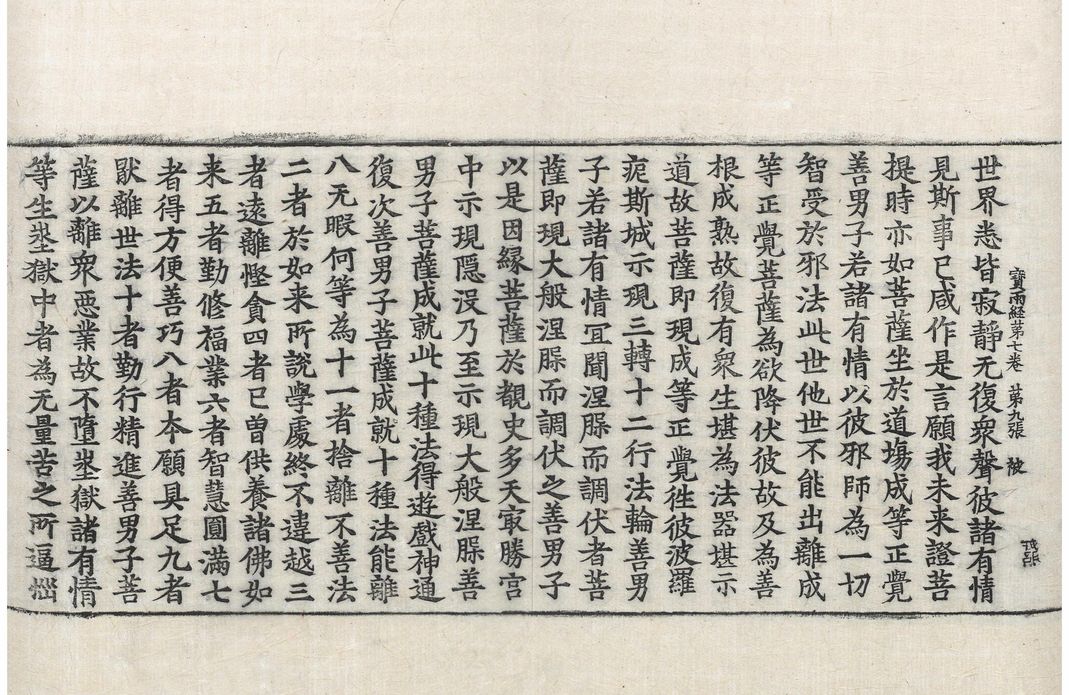 寶雨経苐七卷 苐九張 陂
世界悉皆寂静无復衆聲彼諸有情
見斯事已咸作是言願我未来證菩
提時亦如菩薩坐於道場成等正覺
善男子若諸有情以彼邪師為一切
智受於邪法此世他世不能出離成
等正覺菩薩為欲降伏彼故及為善
根成熟故復有衆生堪為法器堪示
道故菩薩即現成等正覺徃彼波羅
痆斯城示現三轉十二行法輪善男
子若諸有情冝聞涅槃而調伏者菩
薩即現大般涅槃而調伏之善男子
以是因緣菩薩於覩史多天㝡勝宫
中示現隠没乃至示現大般涅槃善
男子菩薩成就此十種法得遊戲神通
復次善男子菩薩成就十種法能離
八无暇何等為十一者捨離不善法
二者於如来所說學處終不違越三
者逺離慳貪四者已曽供養諸佛如
来五者勤修福業六者智慧圓滿七
者得方便善巧八者夲願具足九者
猒離世法十者勤行精進善男子菩
薩以離衆惡業故不墮埊獄諸有情
等生埊獄中者為无量苦之所逼惱